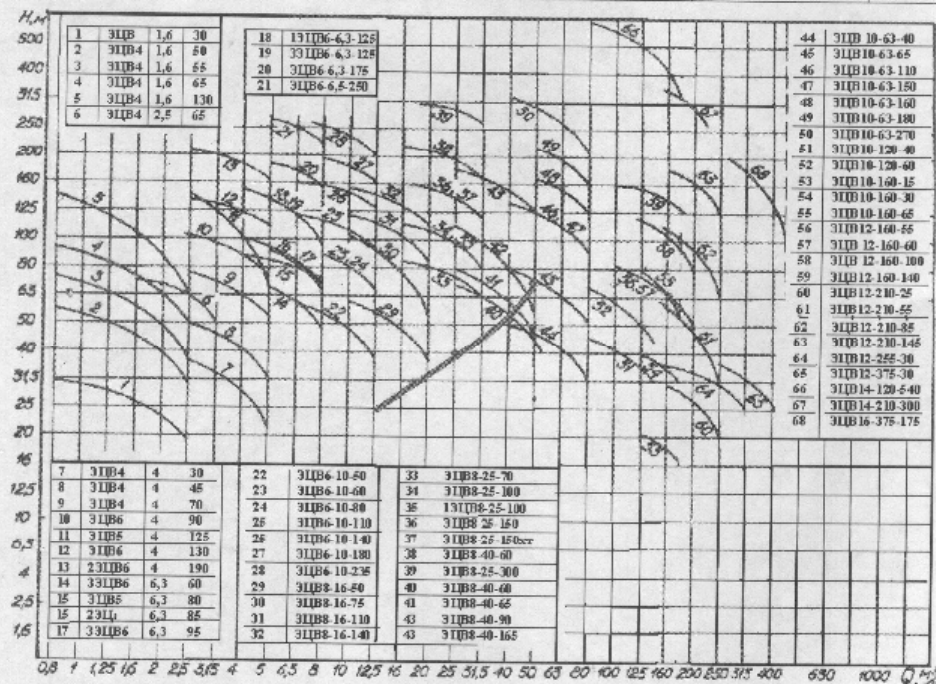 H,м
500
400
31,5
250
200
160
125
100
80
65
50
40
31,5
25
20
16
12,5
10
6,3
4
2,5
1,6
1 ЭЦВ 1,6 30
2 ЭЦВ4 1,6 50
3 ЭЦВ4 1,6 55
4 ЭЦВ4 1,6 65
5 ЭЦВ4 1,6 130
6 ЭЦВ4 2,5 65
18 1ЭЦВ6-6,3-125
19 3ЭЦВ6-6,3-125
20 ЭЦВ6-6,3-175
21 ЭЦВ6-6,5-250
44 ЭЦВ 10-63-40
45 ЭЦВ10-63-65
46 ЭЦВ10-63-110
47 ЭЦВ10-63-150
48 ЭЦВ10-63-160
49 ЭЦВ10-63-180
50 ЭЦВ10-63-270
51 ЭЦВ10-120-40
52 ЭЦВ10-120-60
53 ЭЦВ10-160-15
54 ЭЦВ10-160-30
55 ЭЦВ10-160-65
56 ЭЦВ12-160-55
57 ЭЦВ 12-160-60
58 ЭЦВ 12-160-100
59 ЭЦВ12-160-140
60 ЭЦВ12-210-25
61 ЭЦВ12-210-55
62 ЭЦВ12-210-85
63 ЭЦВ12-210-145
64 ЭЦВ12-255-30
65 ЭЦВ12-375-30
66 ЭЦВ14-120-540
67 ЭЦВ14-210-300
68 ЭЦВ16-375-175
7 ЭЦВ4 4 30
8 ЭЦВ4 4 45
9 ЭЦВ4 4 70
10 ЭЦВ6 4 90
11 ЭЦВ5 4 125
12 ЭЦВ6 4 130
13 2ЭЦВ6 4 190
14 3ЭЦВ6 6,3 60
15 ЭЦВ5 6,3 80
15 2ЭЦ 6,3 85
17 3ЭЦВ6 6,3 95
22 ЭЦВ6-10-50
23 ЭЦВ6-10-60
24 ЭЦВ6-10-80
25 ЭЦВ6-10-110
26 ЭЦВ6-10-140
27 ЭЦВ6-10-180
28 ЭЦВ6-10-235
29 ЭЦВ8-16-50
30 ЭЦВ8-16-75
31 ЭЦВ8-16-110
32 ЭЦВ8-16-140
33 ЭЦВ8-25-70
34 ЭЦВ8-25-100
35 1ЭЦВ8-25-100
36 ЭЦВ8 25-150
37 ЭЦВ8-25-150хт
38 ЭЦВ8-40-60
39 ЭЦВ8-25-300
40 ЭЦВ8-40-60
41 ЭЦВ8-40-65
43 ЭЦВ8-40-90
43 ЭЦВ8-40-165
0,8 1 1,25 1,6 2 2,5 3,15 4 5 6,5 8 10 12,5 16 20 25 31,5 40 50 65 80 100 125 160 200 250 315 400 630 1000 Q,м